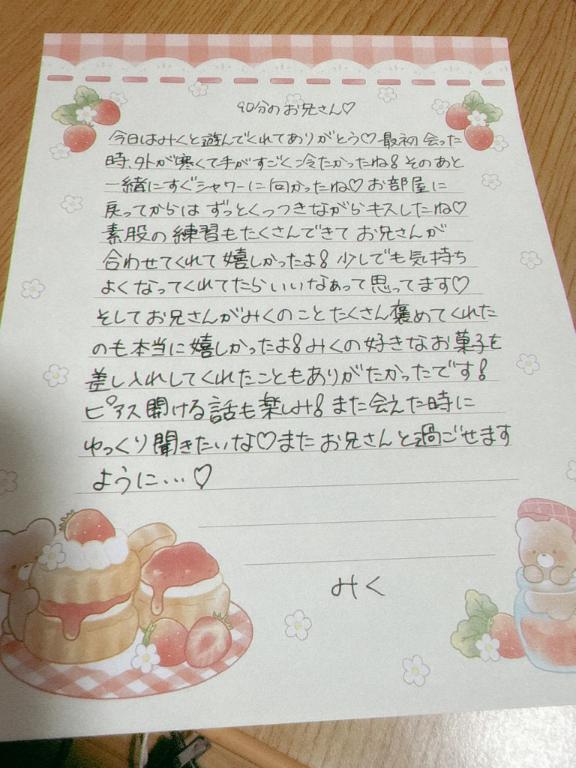 90分のお兄さん♡
今日はみくと遊んでくれてありがとう♡最初会った
時、外が寒くて手がすごく冷たかったね!そのあと
一緒にすぐシャワーに向かったね♡お部屋に
戻ってからはずっとくっつきながらキスしたね♡
素股の練習もたくさんできてお兄さんが
合わせてくれて嬉しかったよ!少しでも気持ち
よくなってくれてたらいいなあって思ってます♡
そしてお兄さんがみくのことたくさん褒めてくれた
のも本当に嬉しかったよ!みくの好きなお菓子を
差し入れしてくれたこともありがたかったです!
ピアス開ける話も楽しみ!また会えた時に
ゆっくり聞きたいな♡またお兄さんと過ごせます
ように…♡
みく